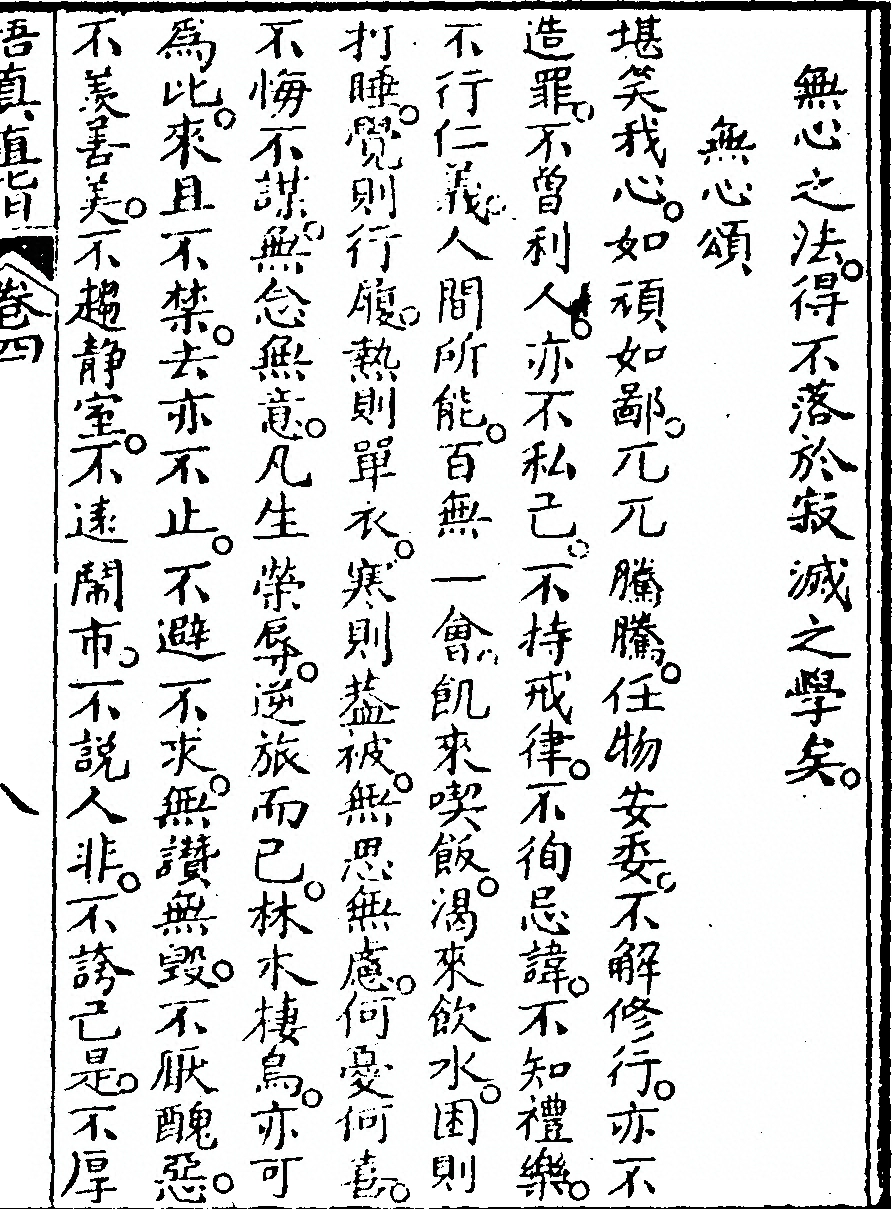 無心之法。得不落於寂滅之學矣。
無心頌
堪笑我心。如頑如鄙。兀兀騰騰。任物安委。不解修行。亦不
造罪。不曾利人。亦不私己。不持戒律。不徇忌諱。不知禮樂。
不行仁義。人間所能。百無一會。飢來喫飯。渴來飲水。困則
打睡。覺則行履。熱則單衣。寒則蓋被。無思無慮。何憂何喜。
不悔不謀。無念無意。凡生榮辱。逆旅而已。林木棲鳥。亦可
為比。來且不禁。去亦不止。不避不求。無讚無毀。不厭醜惡。
不羨善美。不趨靜室。不遠鬧市。不說人非。不誇己是。不厚
悟真直指 卷四 八